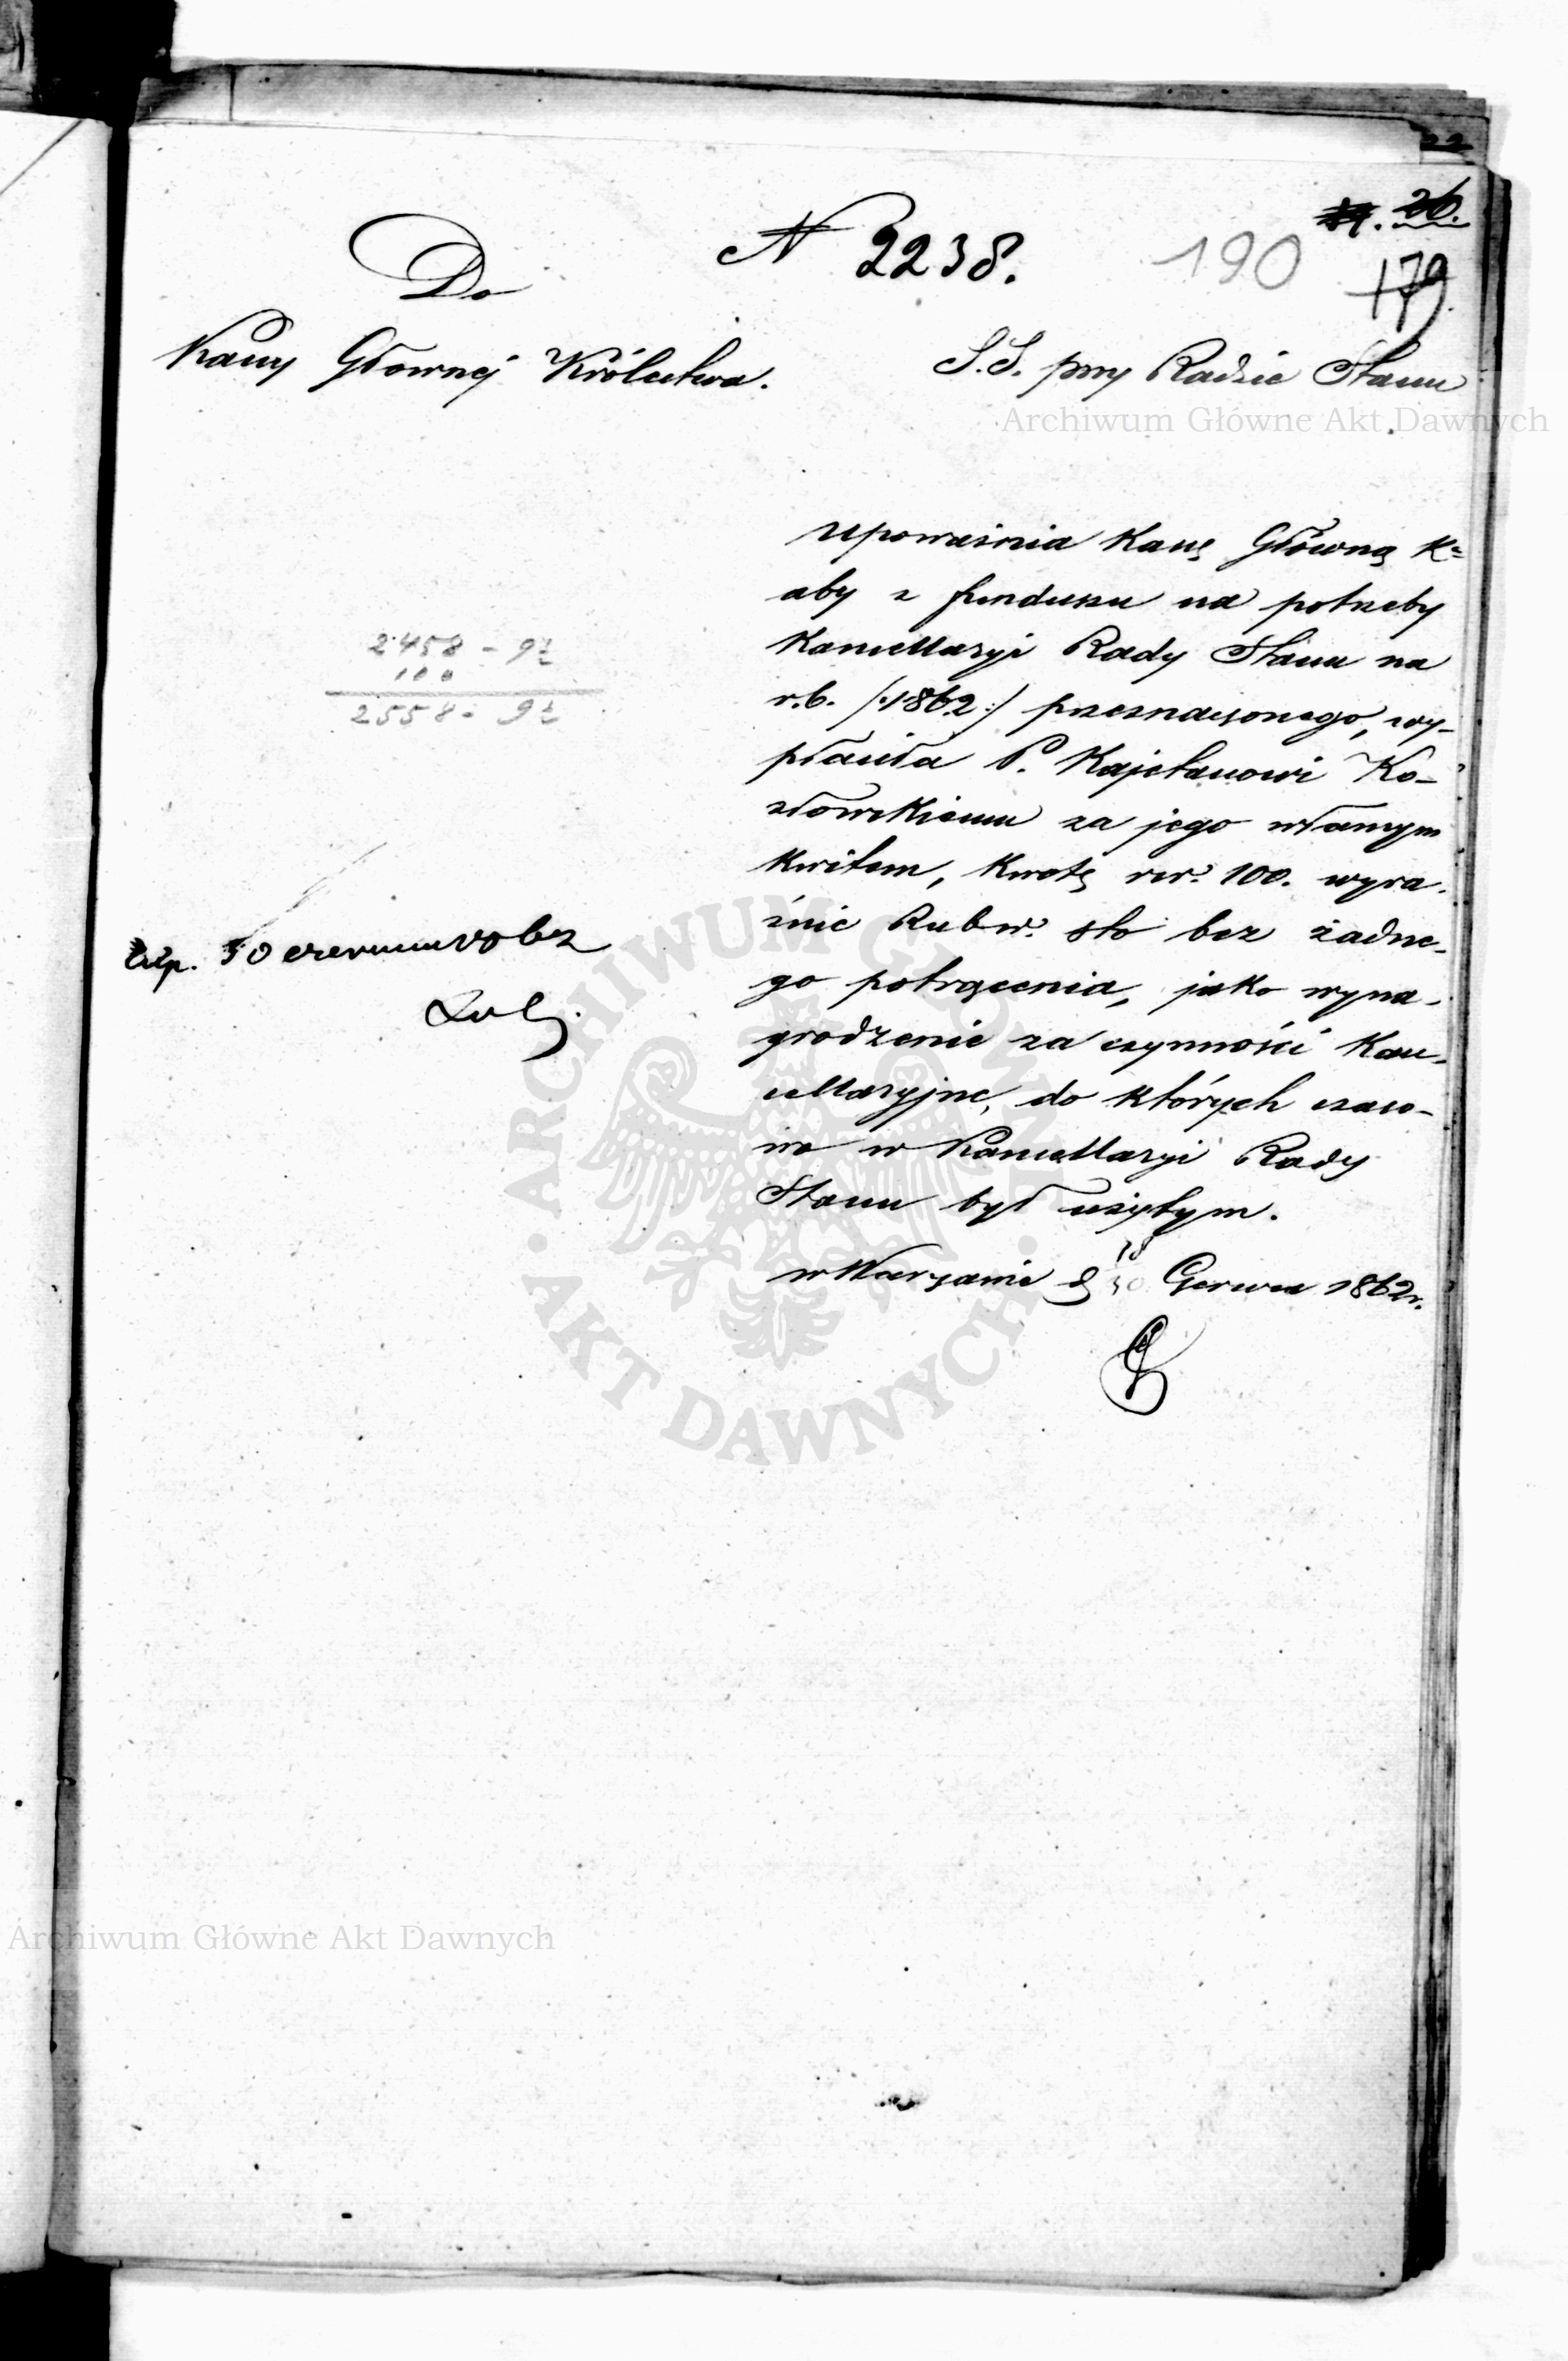 22
26.
190
179
N 3238.
Do
Kassy Głownej Królestwa.
S.S. przy Radzie Stanu
Archiwum Główne Akt Dawnych
upoważnia Kassę Główną K.
aby z funduszu na potrzeby
Kancellaryi Rady Stanu na
r.b. /:1862:/ przeznaczonego, wy-
płaciła P. Kajetanowi Ko-
złowskiemu za jego własnym
Kwitem, Kwotę rsr. 100. wyra-
źnie Rubsr. sto bez żadne-
go potrącenia, jako wyna-
grodzenie za czynności Kan-
cellaryjne, do których czaso-
wo w Kancellaryi Rady
Stanu był użytym.
w Warszawie d 18/30 Czerwca 1862r.
2458 - 9½
100
2558 - 9½
Exp. 30 czerwca 1862
ARCHIWUM GŁÓWNE
AKT DAWNYCH
Archiwum Główne Akt Dawnych